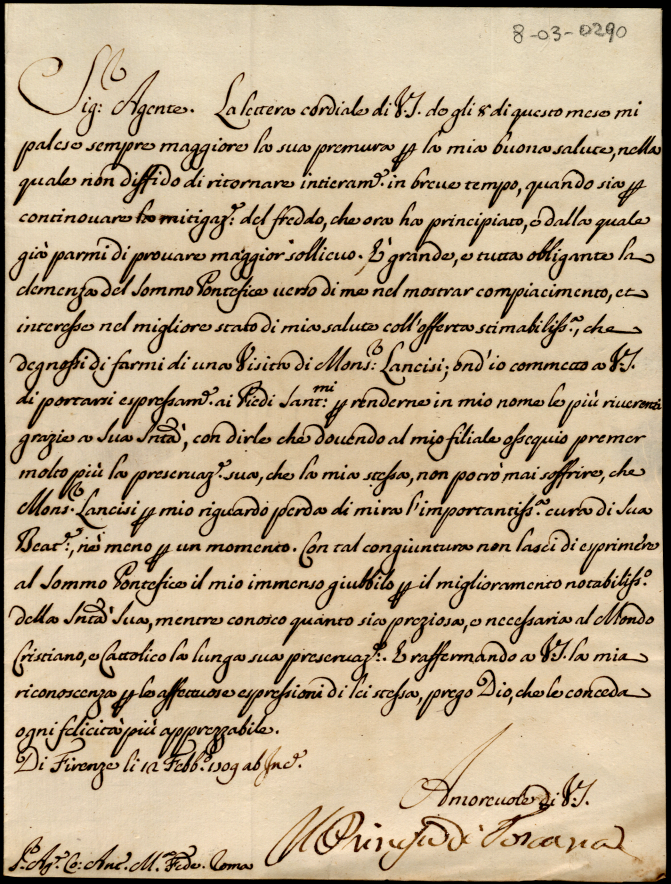 8-03-0290
Sig.r Agente. La lettera cordiale di V.S. de gli 8 di questo mese mi
palesa sempre maggiore la sua premura p la mia buona salute, nella
quale non diffido di ritornare intieram.e in breve tempo, quando sia p
continovare la mitigaz.e del freddo, che ora ha principiato, e dalla quale
già parmi di provare maggior sollievo. È grande, e tutta obligante la
clemenza del Sommo Pontefice verso di me nel mostrar compiacimento, et
interesse nel migliore stato di mia salute coll'offerta stimabiliss.a, che
degnossi di farmi di una Visita di Mons.r Lancisi; ond'io commetto a V.S.
di portarsi espressam.e ai Piedi Sant.mi p renderne in mio nome le più riverenti
grazie a Sua Sntà, con dirle che dovendo al mio filiale ossequio premer
molto più la preservaz.e sua, che la mia stessa, non potrò mai soffrire, che
Mons.r Lancisi p mio riguardo perda di mira l'importantiss.a cura di Sua
Beat.e, nè meno p un momento. Con tal congiuntura non lasci di esprimere
al Sommo Pontefice il mio immenso giubbilo p il miglioramento notabiliss.o
della Sntà Sua, mentre conosco quanto sia preziosa, e necessaria al Mondo
Cristiano, e Cattolico la lunga sua preservaz.e. E raffermando a V.S. la mia
riconoscenza p le affettuose espressioni di lei stessa, prego Dio, che le conceda
ogni felicità più apprezzabile.
Di Firenze li 12 Febb.o 1709 ab Inc.e
Amorevole di V.S.
Il Principe di Toscana
S.r Ag.e Co: Ant. M.a Fede. Roma